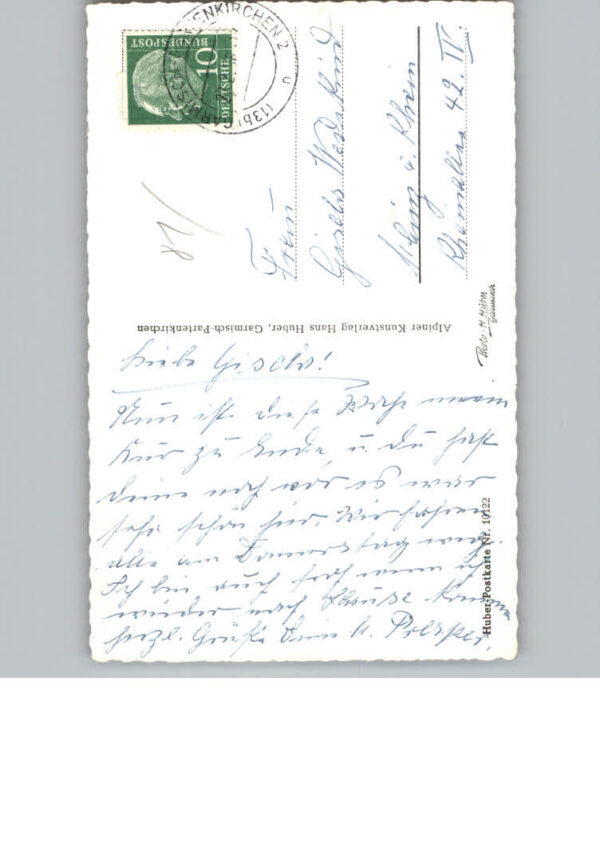 Liebe Gisela!
Nun ist diese Woche meine
Kur zu Ende u. du hast
deine noch vor es war
sehr schön hier. Wir fahren
alle am Donnerstag weg.
Ich bin auch froh wenn ich
wieder nach Hause komme
herzl. Grüße Dein
Frau
Gisela
a. Rhein
42 IV.
Alpiner Kunstverlag Hans Huber, Garmisch-Partenkirchen
Photo: H. Huber
Garmisch
Huber-Postkarte Nr. 10122
DEUTSCHE
BUNDESPOST
10
(13b) GARMISCH-PARTENKIRCHEN 2